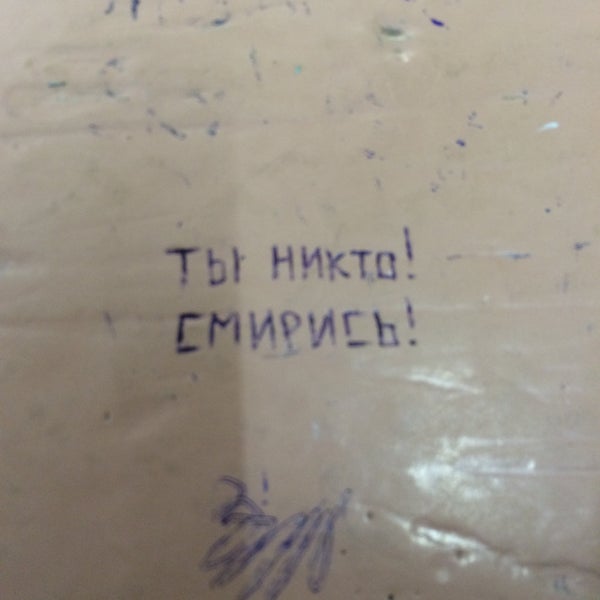 ТЫ НИКТО!
СМИРИСЬ!